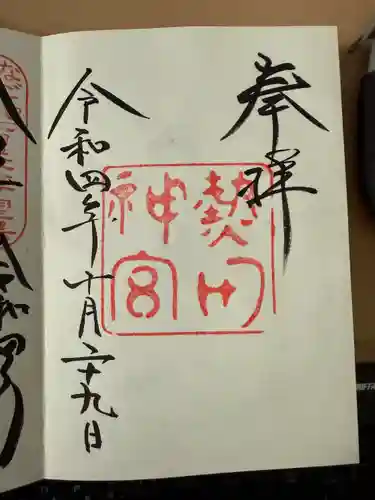 奉拝
熱田
神宮
令和四年十月二十九日
令和四